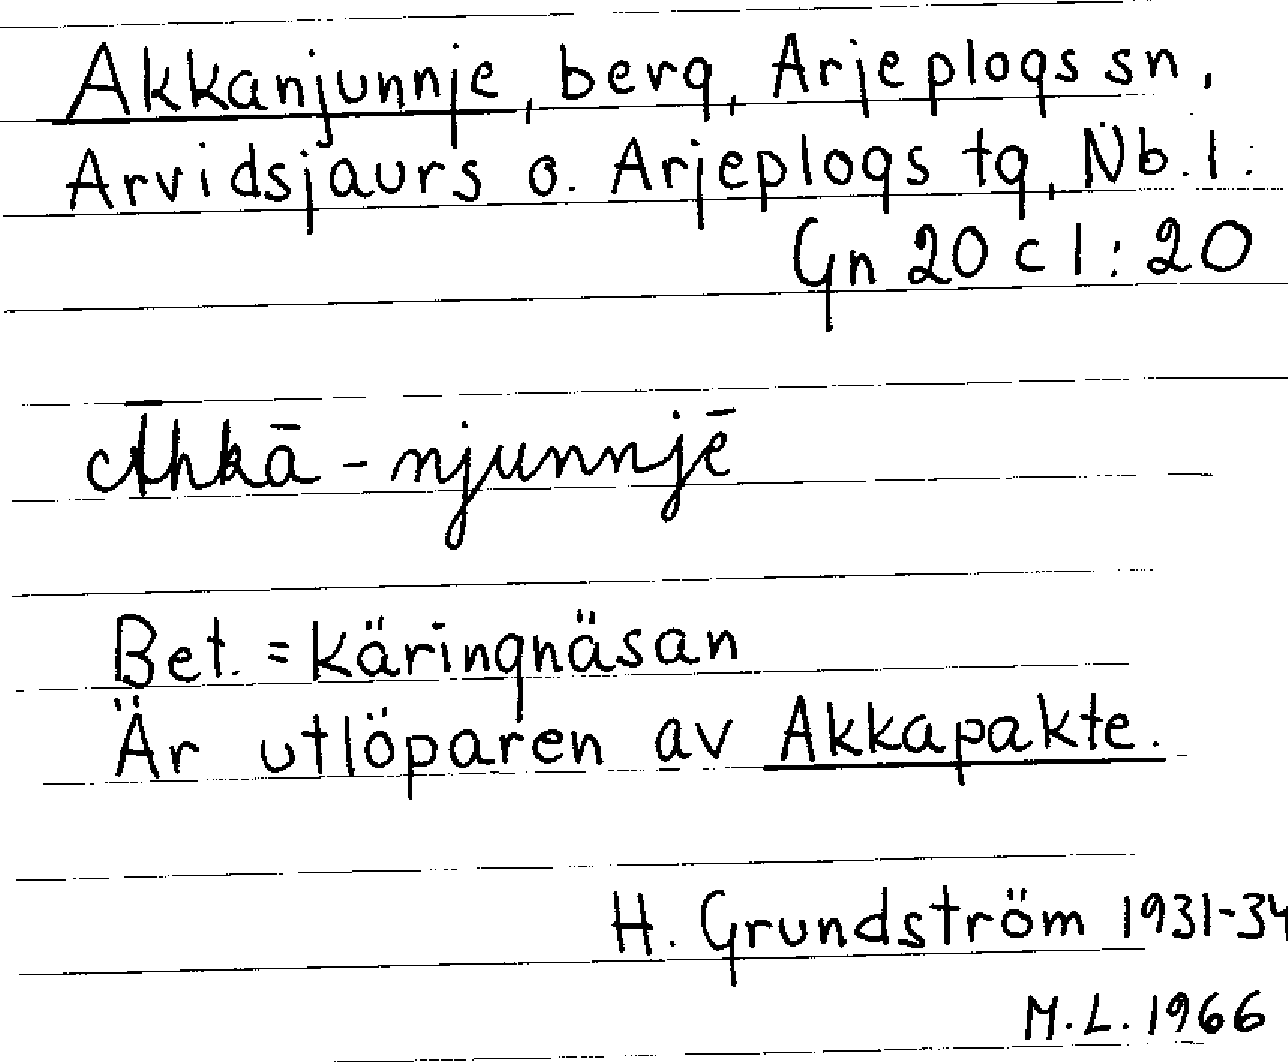 Akkanjunnje, berg, Arjeplogs sn,
Arvidsjaurs o. Arjeplogs tg, Nb. l.
Gn 20 c 1:20
Ahkā-njunnjē
Bet. = käringnäsan
Är utlöparen av Akkapakte.
H. Grundström 1931-34
M.L. 1966